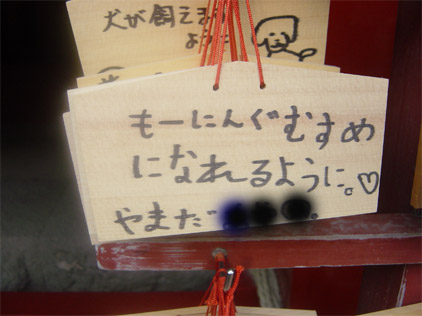 犬が飼えますように
もーにんぐむすめ
になれるように。♡
やまだ